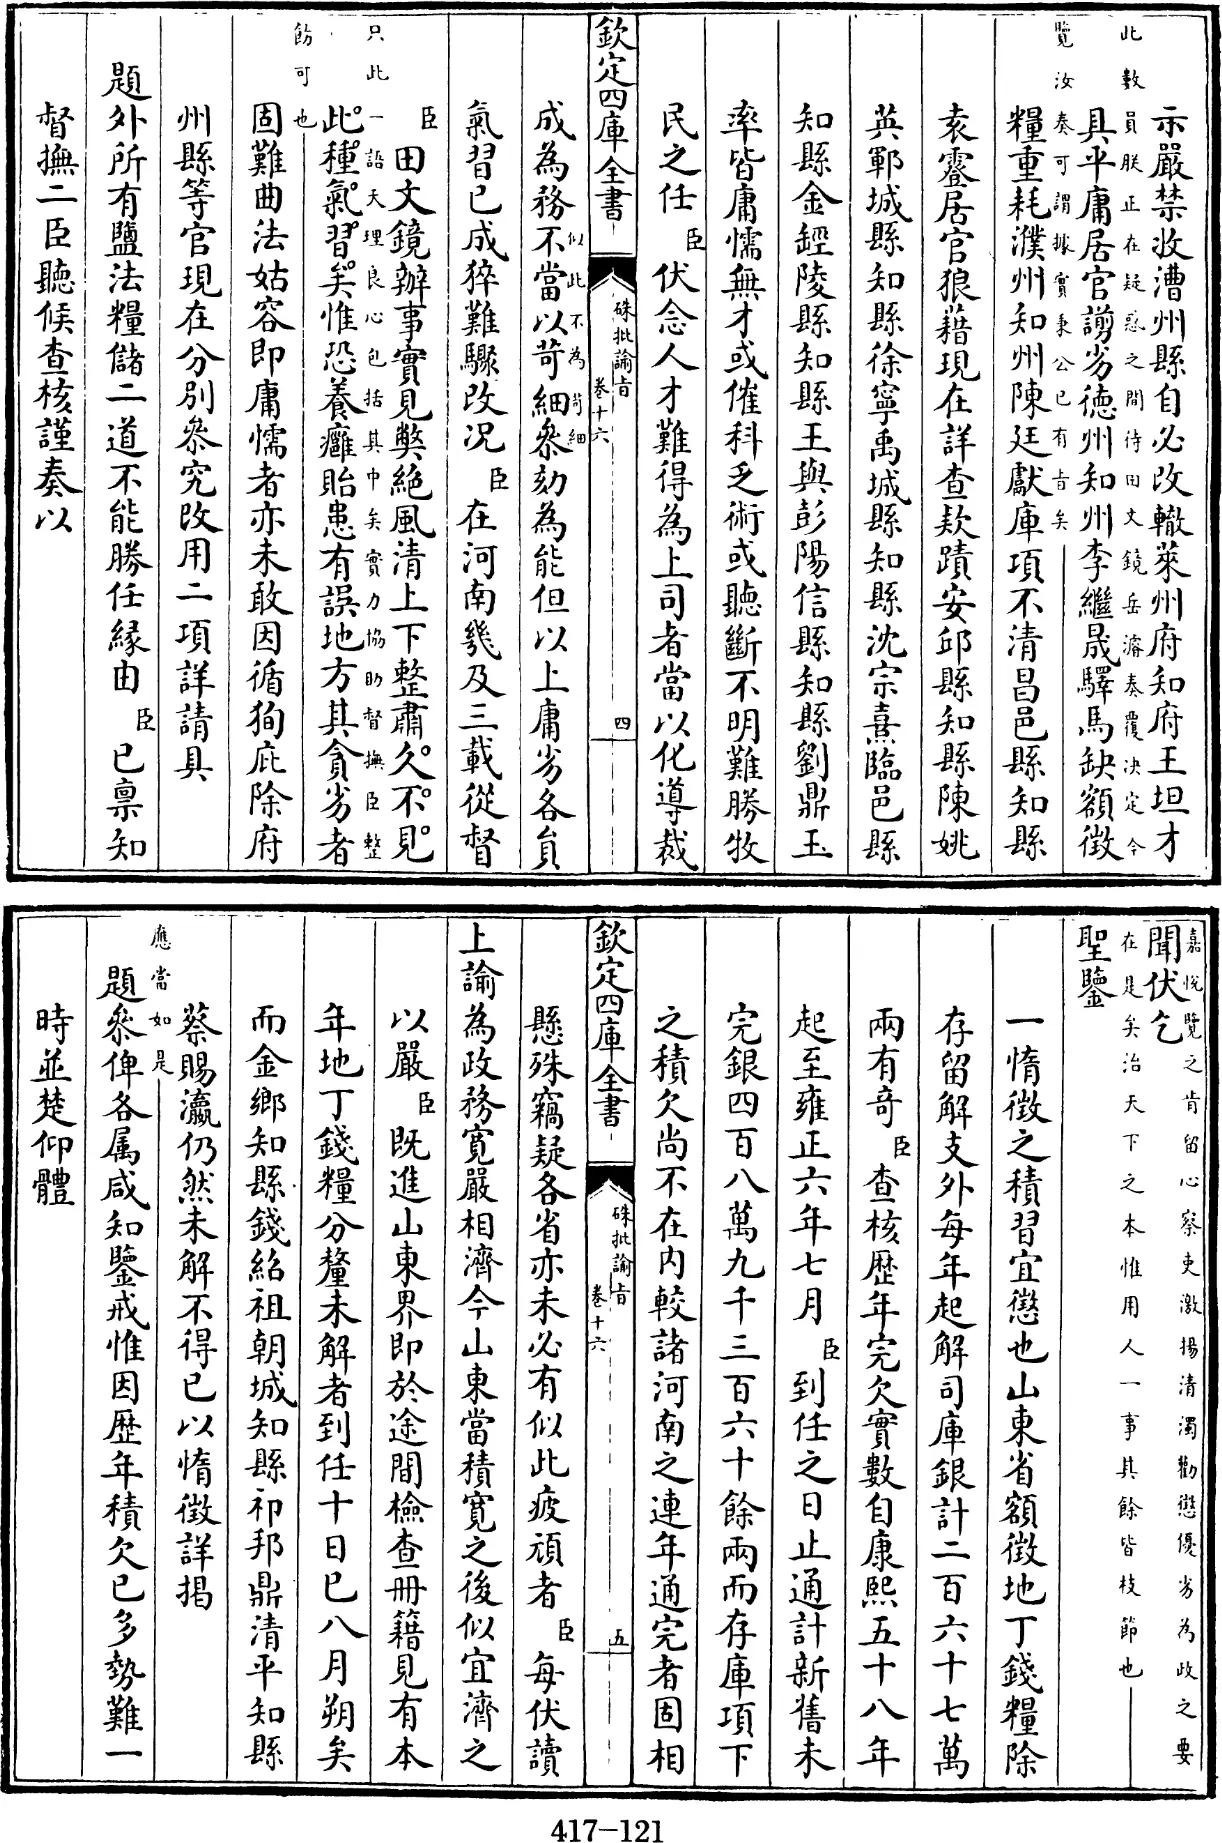 示嚴禁收漕州縣自必改轍萊州府知府王坦才
此數員朕正在疑惑之間待田文鏡岳濬奏覆決定今
具平庸居官謭劣德州知州李繼晟驛馬缺額徵
覽汝奏可謂據實秉公已有旨矣
糧重耗濮州知州陳廷獻庫項不清昌邑縣知縣
袁靈居官狼藉現在詳查款蹟安邱縣知縣陳姚
英鄆城縣知縣徐寧禹城縣知縣沈宗熹臨邑縣
知縣金鏗陵縣知縣王與彭陽信縣知縣劉鼎玉
率皆庸懦無才或催科乏術或聽斷不明難勝牧
民之任臣伏念人才難得為上司者當以化導裁
欽定四庫全書
硃批諭旨
卷十六
四
成為務不當以苛細叅劾為能但以上庸劣各員
似此不為苛細
氣習已成猝難驟改况臣在河南幾及三載從督
臣田文鏡辦事實見弊絶風清上下整肅久不見
只此一語天理良心包括其中矣實力協助督撫臣整
此種氣習矣惟恐養癰貽患有誤地方其貪劣者
飭可也
固難曲法姑容即庸懦者亦未敢因循狥庇除府
州縣等官現在分別叅究改用二項詳請具
題外所有鹽法糧儲二道不能勝任縁由臣已禀知
督撫二臣聽候查核謹奏以
聞伏乞
嘉悅覽之肯留心察吏激揚清濁勸懲優劣為政之要
在是矣治天下之本惟用人一事其餘皆枝節也
聖鑒
一惰徵之積習宜懲也山東省額徵地丁錢糧除
存留解支外每年起解司庫銀計二百六十七萬
兩有奇臣查核歷年完欠實數自康熙五十八年
起至雍正六年七月臣到任之日止通計新舊未
完銀四百八萬九千三百六十餘兩而存庫項下
之積欠尚不在内較諸河南之連年通完者固相
欽定四庫全書
硃批諭旨
卷十六
五
懸殊竊疑各省亦未必有似此疲頑者臣每伏讀
上諭為政務寛嚴相濟今山東當積寛之後似宜濟之
以嚴臣既進山東界即於途間檢查冊籍見有本
年地丁錢糧分釐未解者到任十日已八月朔矣
而金鄉知縣錢紹祖朝城知縣祁邦鼎清平知縣
蔡賜瀛仍然未解不得已以惰徵詳揭
應當如是
題叅俾各属咸知鑒戒惟因歷年積欠已多勢難一
時並楚仰體
417-121